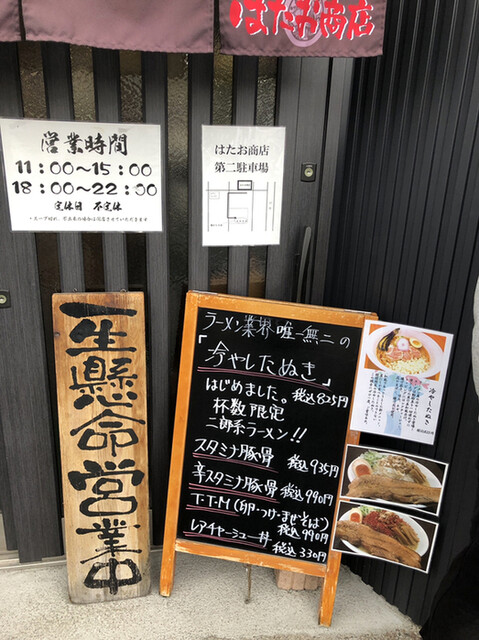 はたお商店
営業時間
11:00〜15:00
18:00〜22:00
定休日 不定休
はたお商店
第二駐車場
一生懸命営業中
ラーメン業界唯一無二の
「冷やしたぬき」
はじめました。税込825円
杯数限定
二郎系ラーメン!!
スタミナ豚骨 税込935円
辛スタミナ豚骨 税込990円
T・T・M(卵・つけ・まぜそば)
税込990円
レアチャーシュー丼
税込330円
冷やしたぬき